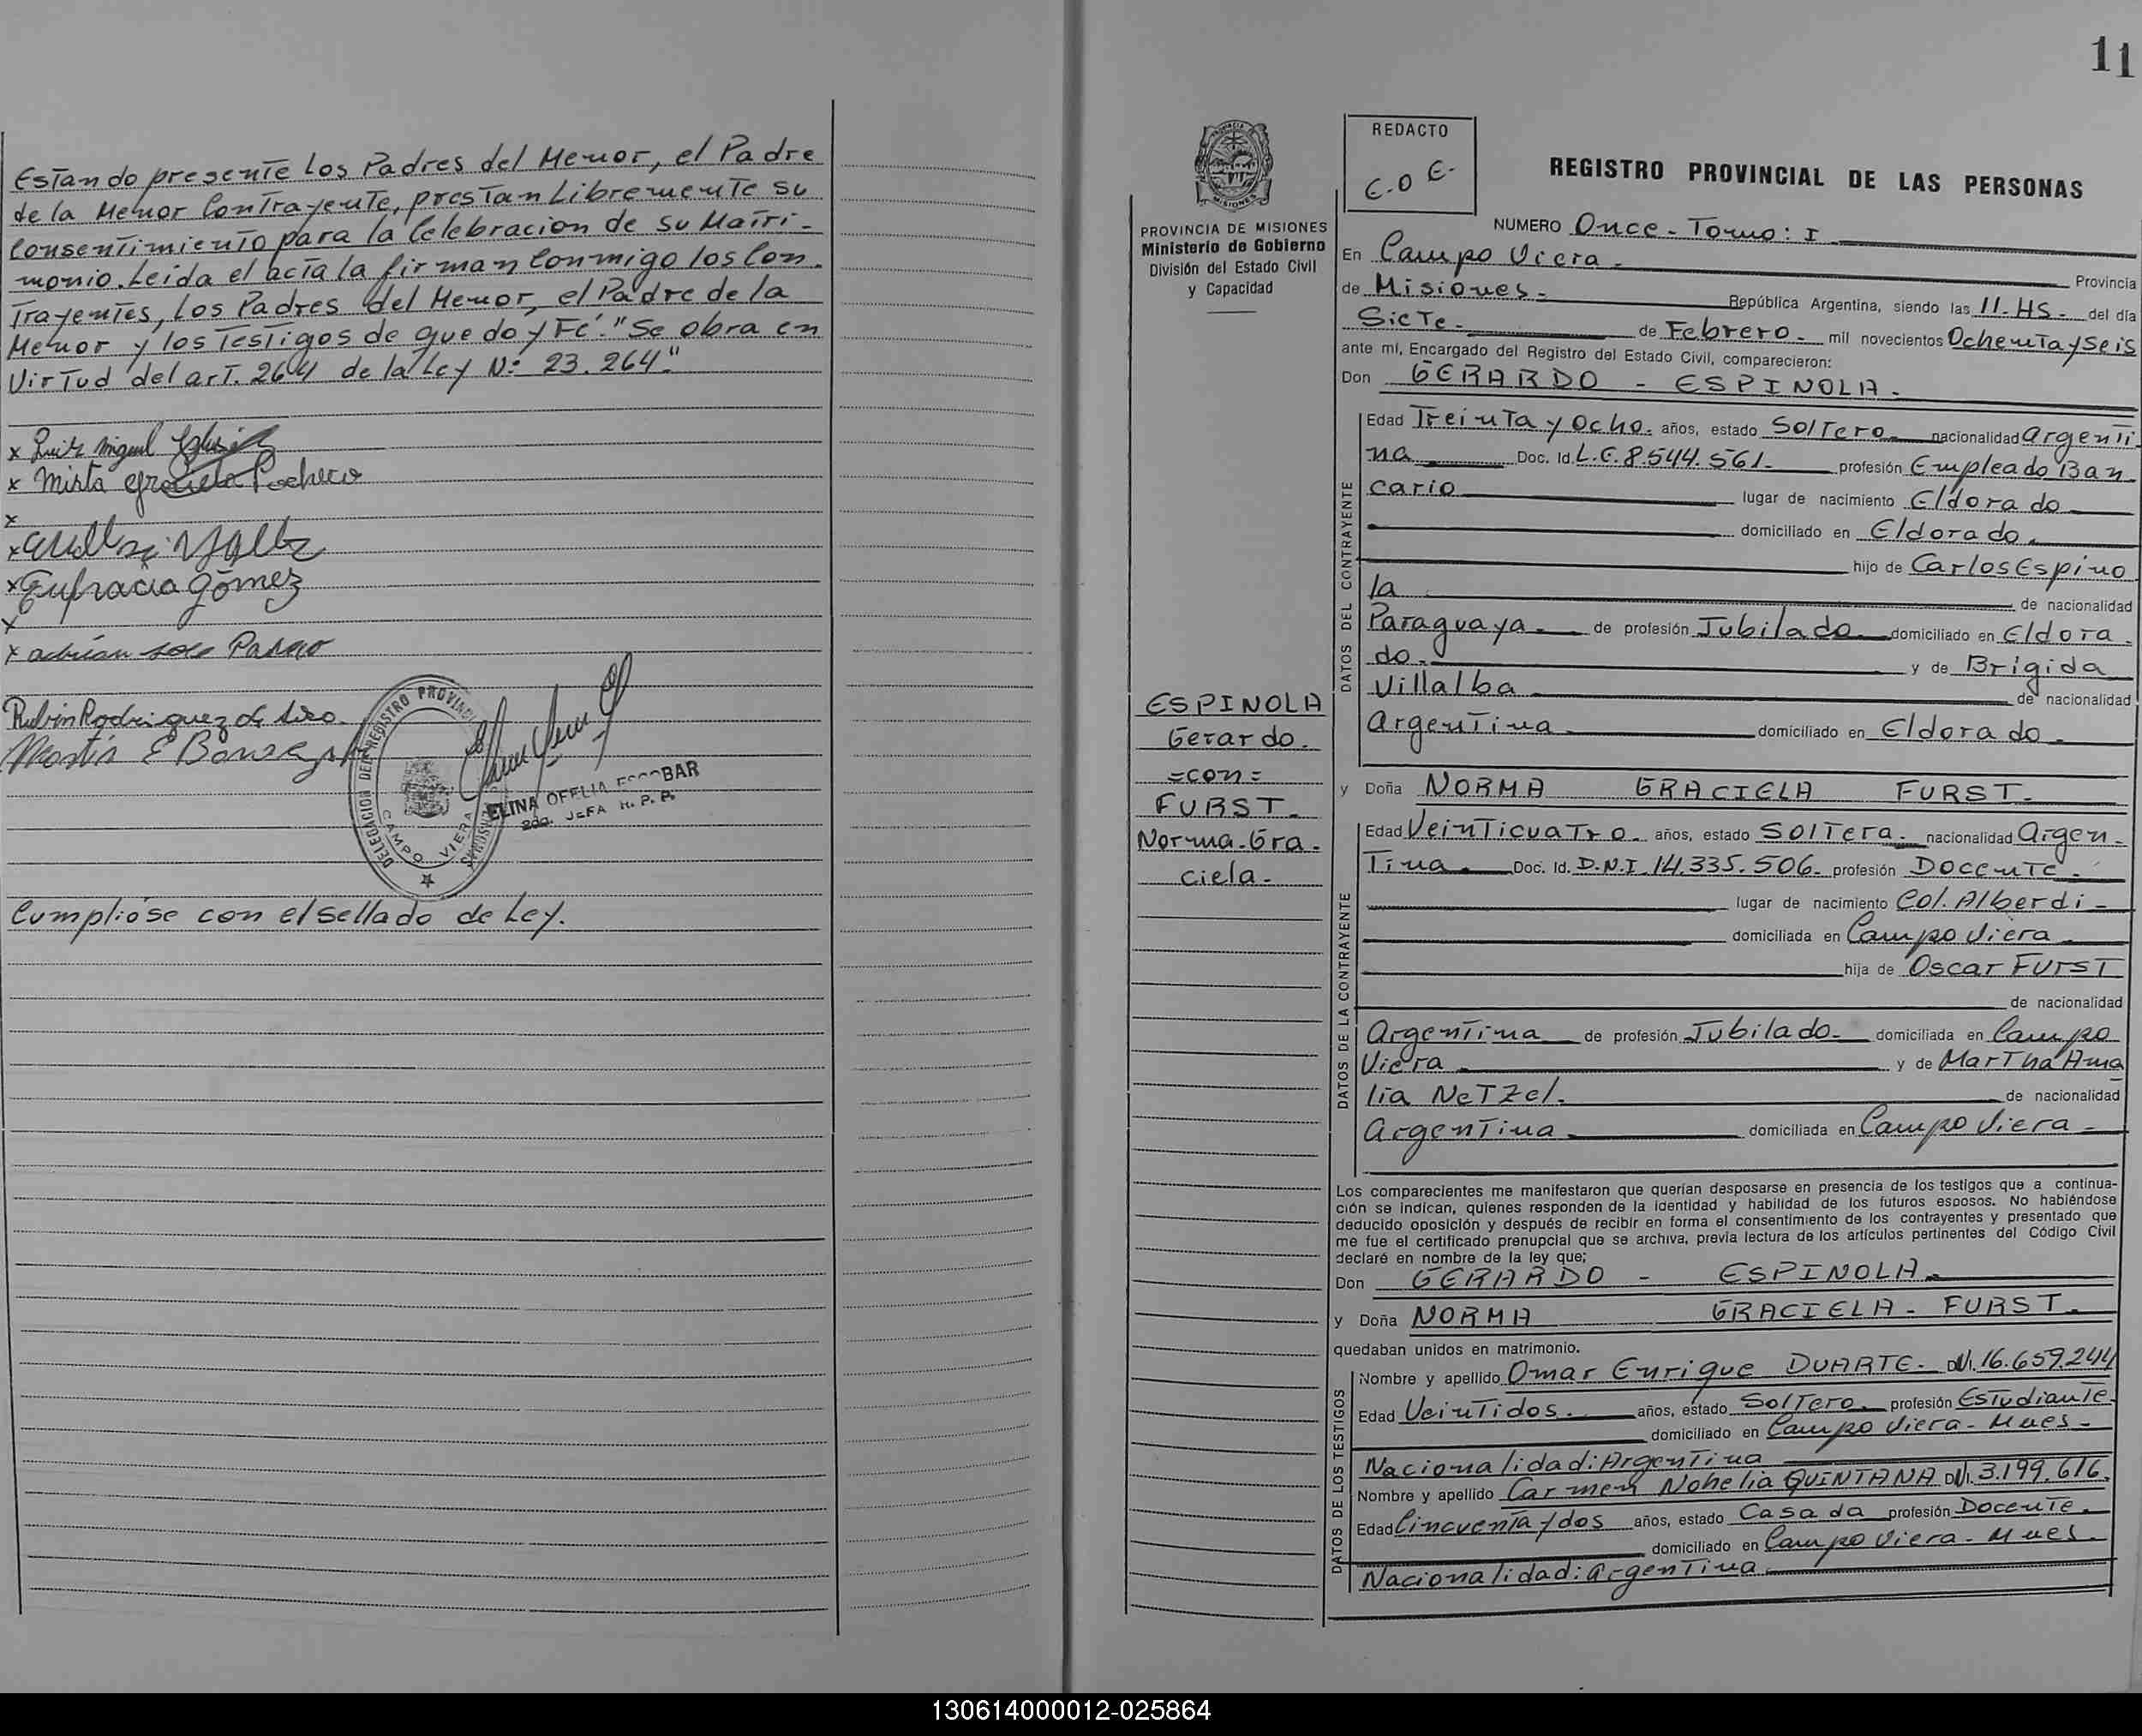 Estando presente los Padres del Menor, el Padre
de la Menor Contrayente, prestan Libremente su
Consentimiento para la Celebracion de su Matri-
monio. Leida el acta la firman Conmigo los Con-
trayentes, los Padres del Menor, el Padre de la
Menor y los Testigos de que doy Fe. "Se obra en
Virtud del art. 264 de la Ley Nº 23.264"
x Luis Miguel
x Mirta Graciela Pacheco
x
x
x Eufracia Gómez
x
x
Rubin Rodriguez
DELEGACION DEL REGISTRO PROVINCIAL
CAMPO VIERA
MISIONES
ELINA OFELIA ESCOBAR
JEFA R. P. P.
Cumplióse con el sellado de Ley.
11
PROVINCIA DE MISIONES
Ministerio de Gobierno
División del Estado Civil
y Capacidad
ESPINOLA
Gerardo.
=con=
FURST.
Norma-Gra-
ciela-
REDACTO
E.O.E.
REGISTRO PROVINCIAL DE LAS PERSONAS
NUMERO Once - Tomo: I
En Campo Viera - Provincia
de Misiones - República Argentina, siendo las 11-HS- del día
Siete- de Febrero- mil novecientos Ochenta y Seis
ante mí, Encargado del Registro del Estado Civil, comparecieron:
Don GERARDO - ESPINOLA -
DATOS DEL CONTRAYENTE
Edad Treinta y Ocho. años, estado Soltero nacionalidad argenti
na Doc. Id. L.E. 8.544.561- profesión Empleado Ban
cario lugar de nacimiento Eldorado
domiciliado en Eldorado
hijo de Carlos Espino
la de nacionalidad
Paraguaya de profesión Jubilado domiciliado en Eldora-
do- y de Brigida
Villalba de nacionalidad
argentina domiciliado en Eldorado-
y Doña NORMA GRACIELA FURST-
DATOS DE LA CONTRAYENTE
Edad Veinticuatro- años, estado Soltera- nacionalidad Argen-
tina Doc. Id. D.N.I. 14.335.506- profesión Docente-
lugar de nacimiento Col. Alberdi-
domiciliada en Campo Viera
hija de Oscar Furst
de nacionalidad
Argentina de profesión Jubilado- domiciliada en Campo
Viera y de Martha Ama
lia Netzel. de nacionalidad
argentina domiciliada en Campo Viera-
Los comparecientes me manifestaron que querían desposarse en presencia de los testigos que a continua-
ción se indican, quienes responden de la identidad y habilidad de los futuros esposos. No habiéndose
deducido oposición y después de recibir en forma el consentimiento de los contrayentes y presentado que
me fue el certificado prenupcial que se archiva, previa lectura de los artículos pertinentes del Código Civil
declaré en nombre de la ley que;
Don GERARDO - ESPINOLA-
y Doña NORMA GRACIELA - FURST-
quedaban unidos en matrimonio.
DATOS DE LOS TESTIGOS
Nombre y apellido Omar Enrique DUARTE- DNI. 16.659.244
Edad Veintidos. años, estado Soltero profesión Estudiante
domiciliado en Campo Viera - Mnes-
Nacionalidad: Argentina
Nombre y apellido Carmen Nohelia QUINTANA DNI. 3.199.616.
Edad Cincuenta y dos años, estado Casada profesión Docente.
domiciliado en Campo Viera - Mnes-
Nacionalidad: argentina
130614000012-025864